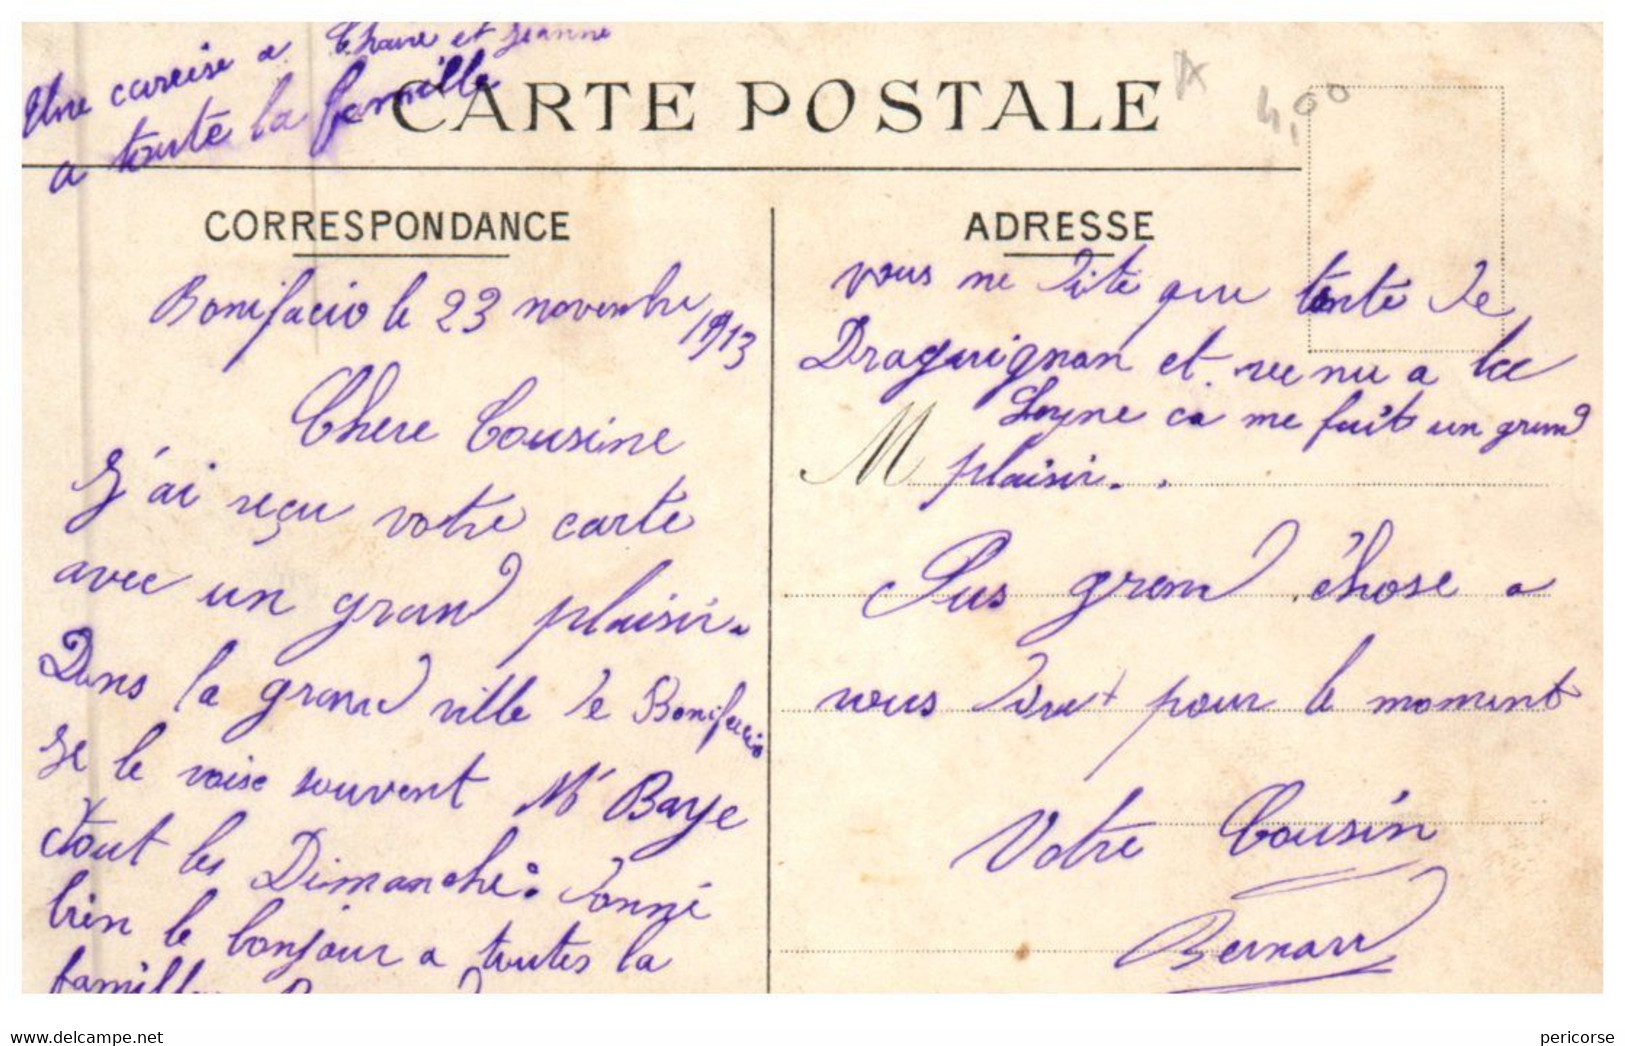 Une caresse a Claire et Jeanne
a toute la famille
CARTE POSTALE
4,00
CORRESPONDANCE
Bonifacio le 23 novembre
1913
Chere Cousine
J'ai reçu votre carte
avec un grand plaisir.
Dans la grand ville de Bonifacio
Je le voise souvent Mr Baye
tout les Dimanche: donné
bien le bonjour a toutes la
famille
ADRESSE
vous me dite que tente de
Draguignan et venu a la
Seyne ca me fait un grand
M plaisir..
Pus grand chose a
vous dire pour le moment
Votre Cousin
Bernard
delcampe.net
pericorse